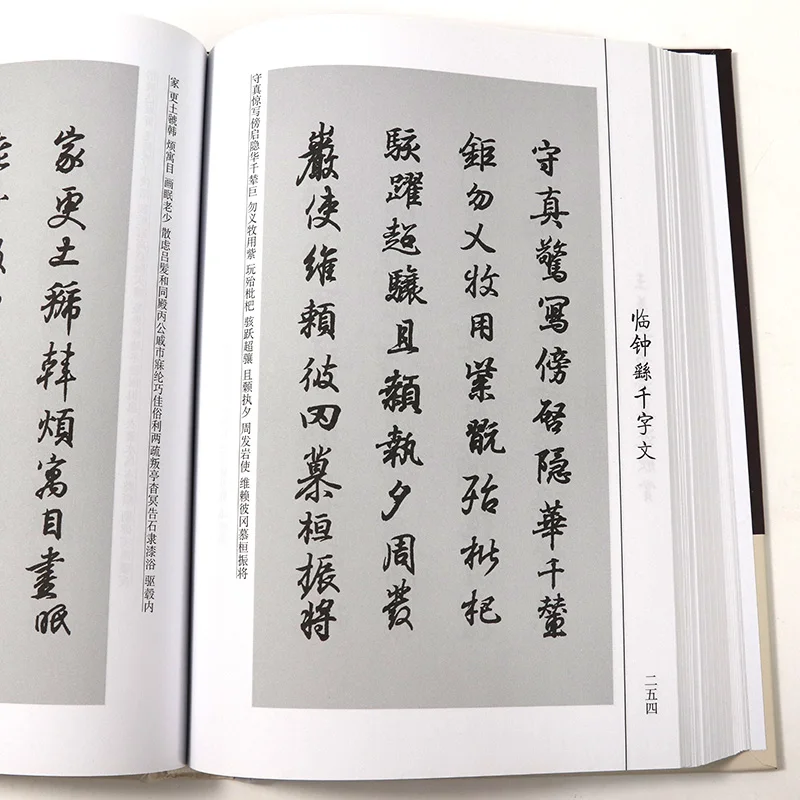 临钟繇千字文
二五四
守真驚寫傍啓隐華千輦
鉅勿乂牧用紫翫殆枇杷
駭躍超驤且顙執夕周發
巖使維賴彼罡慕桓振將
守真惊写傍启隐华千辇巨 勿义牧用紫 玩殆枇杷 骇跃超骧 且颡执夕 周发岩使 维赖彼冈慕桓振将
家更土虢韩煩寓目畫眠
家 更土虢韩 烦寓目 画眠老少 散虑吕髮和同殿丙公戚市寐纶巧佳俗利两 疏叛亭杳冥告石隶漆浴 驱毂内